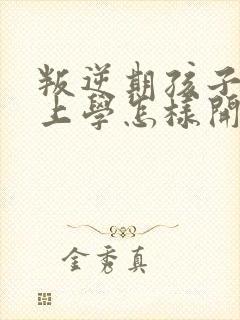 叛逆期孩子
上學怎樣開
金秀真